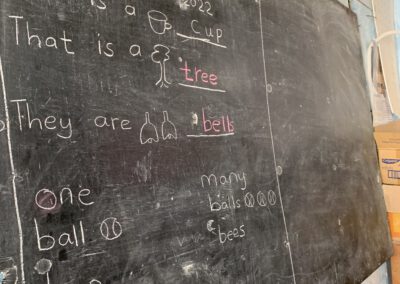 2022
is a cup
That is a tree
They are bells
One many
ball balls
bees